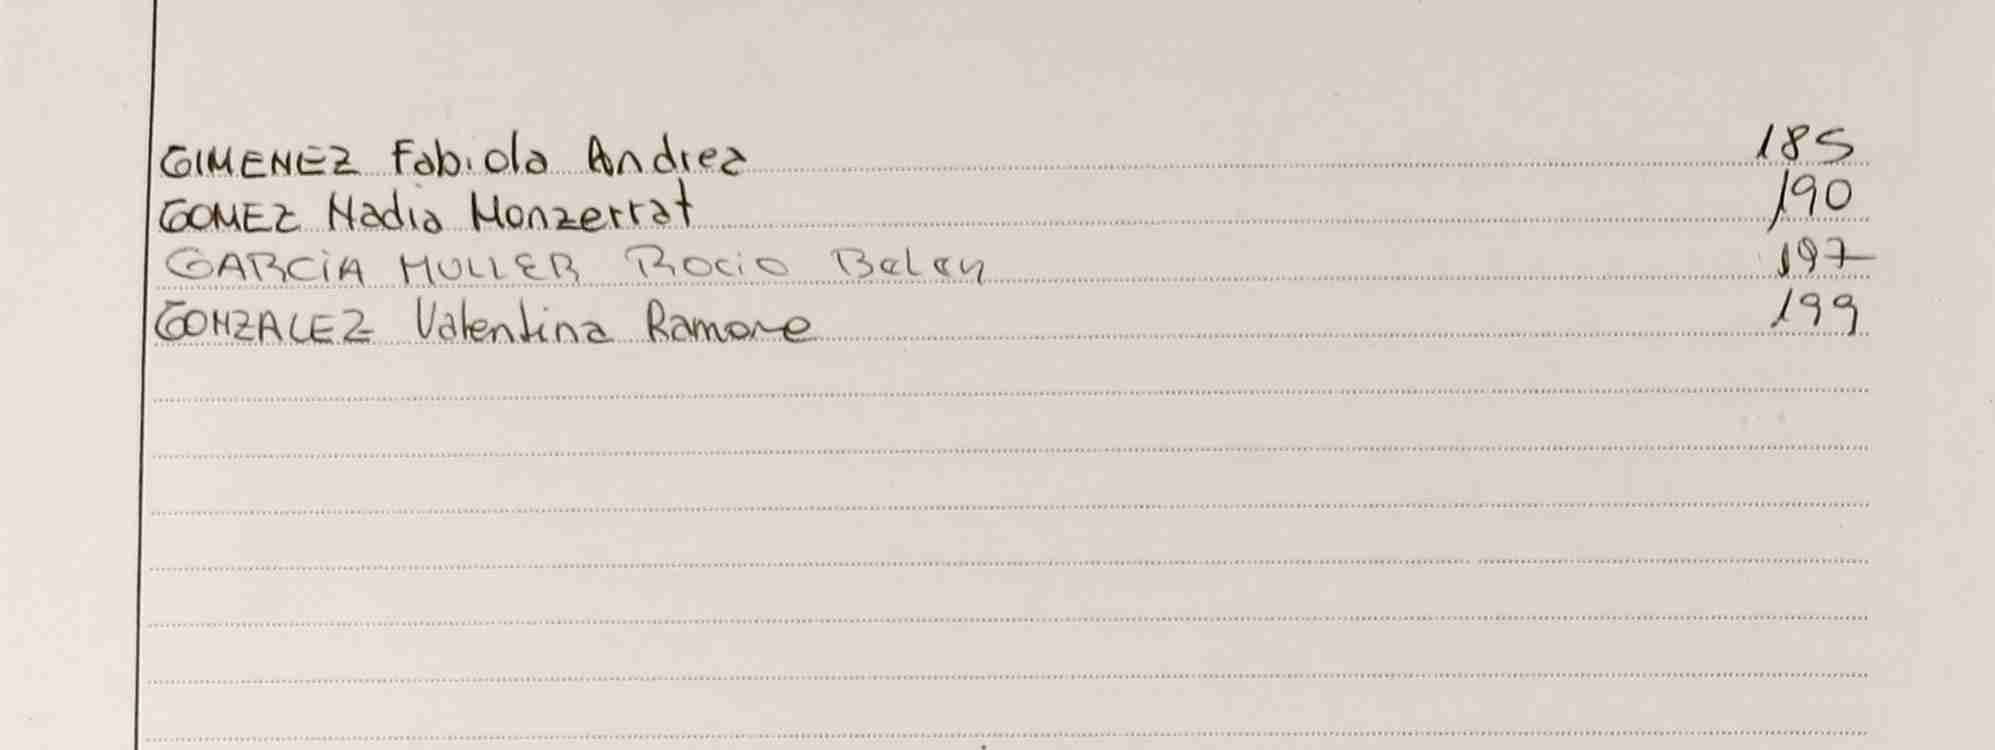 GIMENEZ Fabiola Andrea 185
GOMEZ Nadia Monzerrat 190
GARCIA MULLER Rocio Belen 197
GONZALEZ Valentina Ramone 199